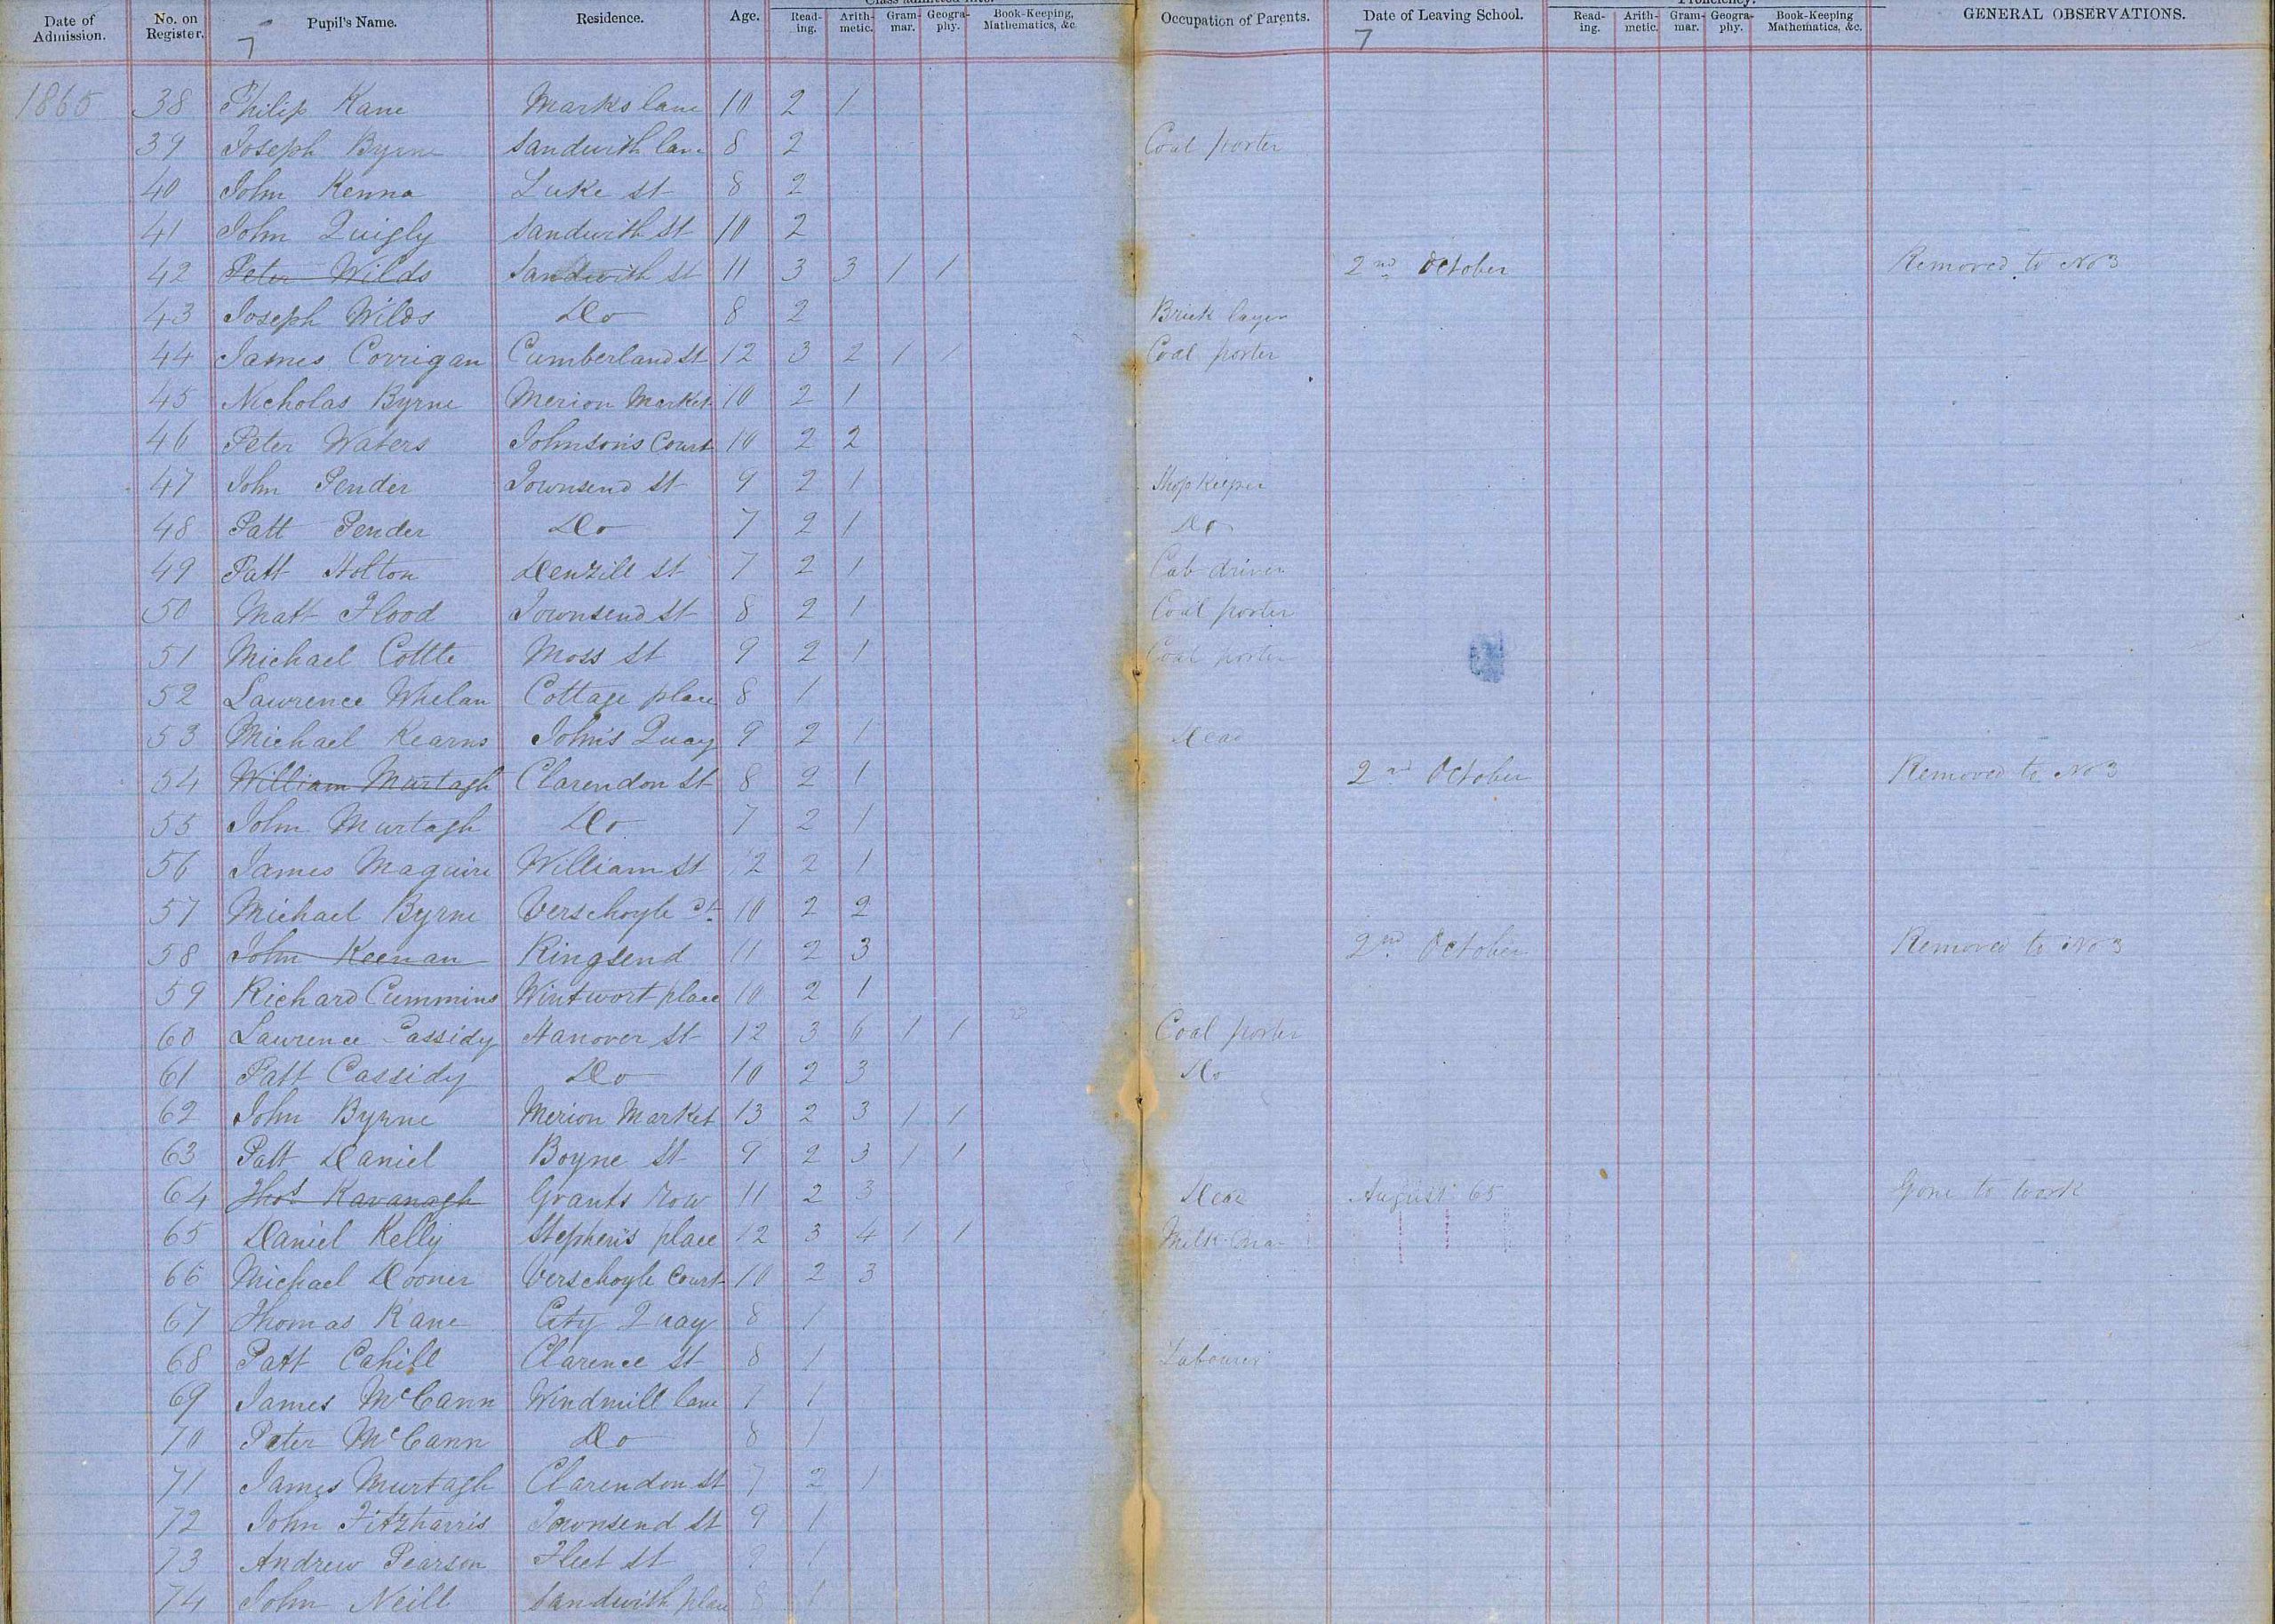 Date of Admission. No. on Register. Pupil's Name. Residence. Age. Class admitted into. Read-ing. Arith-metic. Gram-mar. Geogra-phy. Book-Keeping, Mathematics, &c. Occupation of Parents. Date of Leaving School. Proficiency. Read-ing. Arith-metic. Gram-mar. Geogra-phy. Book-Keeping Mathematics, &c. GENERAL OBSERVATIONS.
7 7
1865 38 Philip Kane Marks lane 10 2 1
39 Joseph Byrne Sandwith lane 8 2 Coal porter
40 John Kenna Luke St 8 2
41 John Quigly Sandwith St 10 2
42 Peter Wilds Sandwith St 11 3 3 1 1 2nd October Removed to No 3
43 Joseph Wilds Do 8 2 Brick layer
44 James Corrigan Cumberland St 12 3 2 1 1 Coal porter
45 Nicholas Byrne Merion Market 10 2 1
46 Peter Waters Johnson's Court 10 2 2
47 John Pender Townsend St 9 2 1 Shop Keeper
48 Patt Pender Do 7 2 1 Do
49 Patt Holton Denzill St 7 2 1 Cab driver
50 Matt Flood Townsend St 8 2 1 Coal porter
51 Michael Cottle Moss St 9 2 1 Coal porter
52 Lawrence Whelan Cottage place 8 1
53 Michael Kearns John's Quay 9 2 1 Dead
54 William Murtagh Clarendon St 8 2 1 2nd October Removed to No 3
55 John Murtagh Do 7 2 1
56 James Maguire William St 12 2 1
57 Michael Byrne Verschoyle Ct 10 2 2
58 John Keenan Ringsend 11 2 3 2nd October Removed to No 3
59 Richard Cummins Wintwort place 10 2 1
60 Lawrence Cassidy Hanover St 12 3 6 1 1 Coal porter
61 Patt Cassidy Do 10 2 3 Do
62 John Byrne Merion Market 13 2 3 1 1
63 Patt Daniel Boyne St 9 2 3 1 1
64 Thos Kavanagh Grants row 11 2 3 Dead August 65 Gone to work
65 Daniel Kelly Stephen's place 12 3 4 1 1 Milk-man
66 Michael Dooner Verschoyle Court 10 2 3
67 Thomas Kane City Quay 8 1
68 Patt Cahill Clarence St 8 1 Labourer
69 James McCann Windmill lane 7 1
70 Peter McCann Do 8 1
71 James Murtagh Clarendon St 7 2 1
72 John Fitzharris Townsend St 9 1
73 Andrew Pearson Fleet St 9 1
74 John Neill Sandwith place 8 1